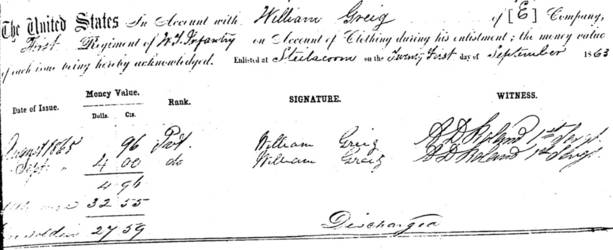 The United States In Account with William Greig of [E] Company,
First Regiment of W.T. Infantry on Account of Clothing during his enlistment; the money value
of each issue being hereby acknowledged. Enlisted at Steilacoom on the Twenty First day of September 1863
Date of Issue. Money Value. Rank. SIGNATURE. WITNESS.
Dolls. Cts.
August 1865 96 Pvt. William Greig A D Roland 1st Sergt
Sept. " 4 00 do William Greig A D Roland 1st Sergt
4 96
32 55
27 59 Discharged